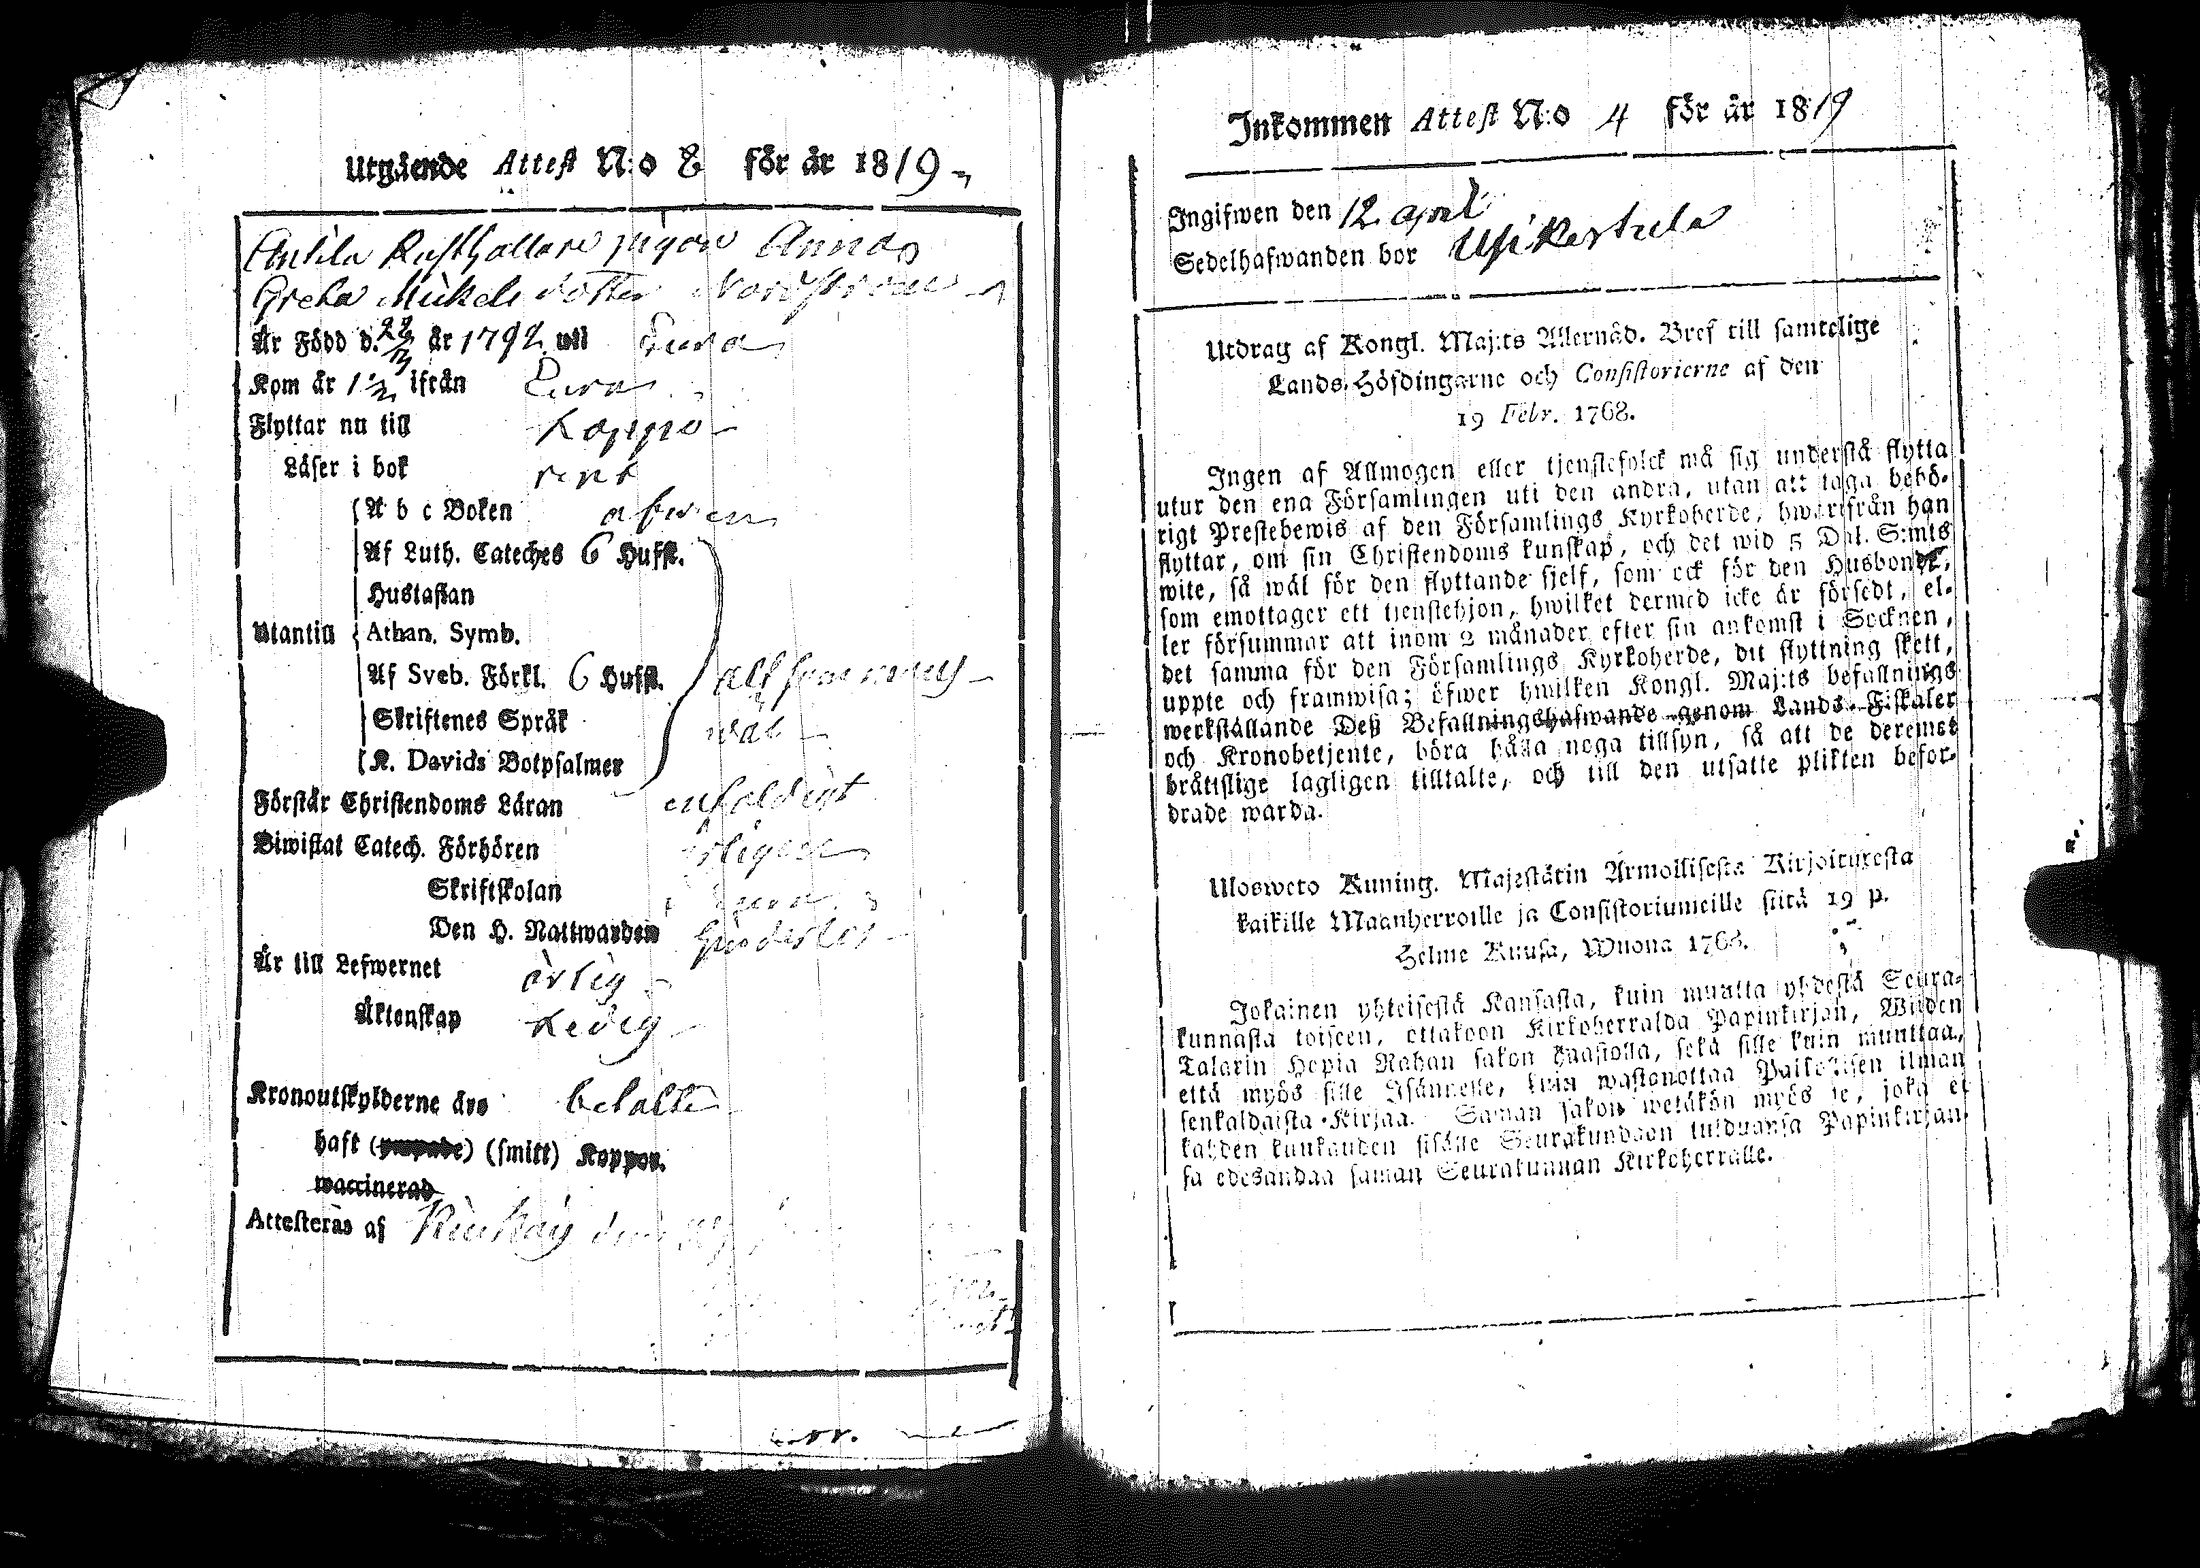 Utgående Attest N:o 8 för år 1819
Anttila Rusthollare pigan Anna
Greta Mickels dotter Nordström
Är Född d. 22/12 år 1792 uti Eura
Kom år 1 1/2 ifrån Eura
Flyttar nu till Loppo
Läser i bok rent
A b c Boken afwen
Af Luth. Cateches 6 Hufst.
Hustaflan
Utantill Athan. Symb.
Af Sveb. Förkl. 6 Hufst. alt samman
Skriftenes Språk wäl
K. Davids Botpsalmer
Förstår Christendoms Läran enfaldigt
Biwistat Catech. Förhören
Skriftskolan
Den H. Nattwarden
Är till Lefwernet ärlig
Äktenskap Ledig
Kronoutskylderne äro betalte
haft (ympade) (smitt) Koppor.
waccinerad
Attesteras af Kiukais den
Inkommen Attest N:o 4 för år 1819
Ingifwen den 12 april
Sedelhafwanden bor
Utdrag af Kongl. Maj:ts Allernåd. Bref till samtelige
Lands-Höfdingarne och Consistorierne af den
19 Febr. 1768.
Ingen af Allmogen eller tjenstefolck må sig understå flytta
utur den ena Församlingen uti den andra, utan att taga behö-
rigt Prestebewis af den Församlings Kyrkoherde, hwarifrån han
flyttar, om sin Christendoms kunskap, och det wid 5 Dal. S:mts
wite, så wäl för den flyttande sjelf, som ock för den Husbonde,
som emottager ett tjenstehjon, hwilket dermed icke är försedt, el-
ler försummar att inom 2 månader efter sin ankomst i Socknen,
det samma för den Församlings Kyrkoherde, dit flyttning skett,
uppte och framwisa; öfwer hwilken Kongl. Maj:ts befallnings
werkställande Deß Befallningshafwande genom Lands-Fiskaler
och Kronobetjente, böra hålla noga tillsyn, så att de deremot
bråtislige lagligen tilltalte, och till den utsatte plikten befor-
drade warda.
Ulosweto Kuning. Majestätin Armollisesta Kirjoituxesta
kaikille Maanherroille ja Consistoriumeille siitä 19 p.
Helme Kuusa, Wuona 1768.
Jokainen yhteisestä Kansasta, kuin muutta yhdestä Seura-
kunnasta toiseen, ottakoon Kirkoherralda Papinkirjan, Wiiden
Talarin Hopia Rahan sakon haastolla, sekä sille kuin muuttaa,
että myös sille Isännelle, kuin wastanottaa Palkollisen ilman
senkaldaista Kirjaa. Saman sakon wetäkön myös se, joka ei
kahden kuukauden sisälle Seurakundaan tulduansa Papinkirjan-
sa edesandaa saman Seurakunnan Kirkoherralle.